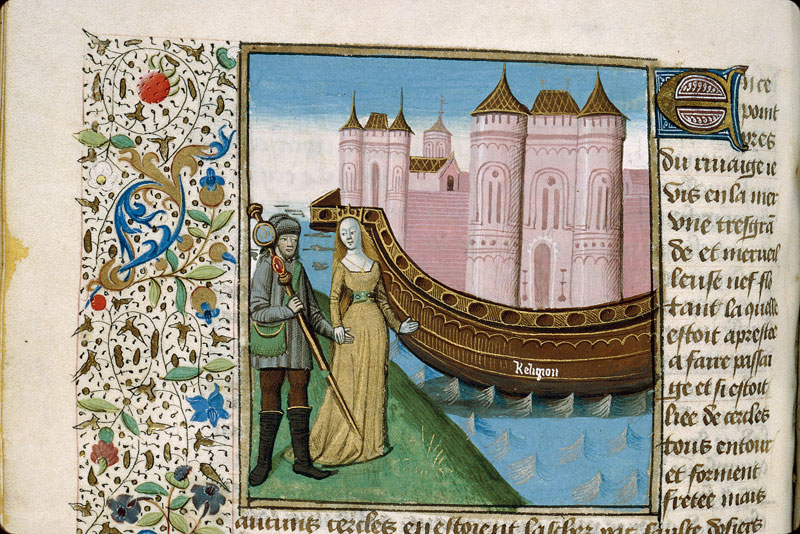 Religion
En ce
point
pres
du rivaige ie
vis en la mer
vne tresgrā
de et merueil
leuse nef flo
tant la quelle
estoit aprestee
a faire passai
ge et si estoit
liee de cercles
tous entour
et forment
fretee mais
aucuns cercles en estoient laschez par faulte dosiers